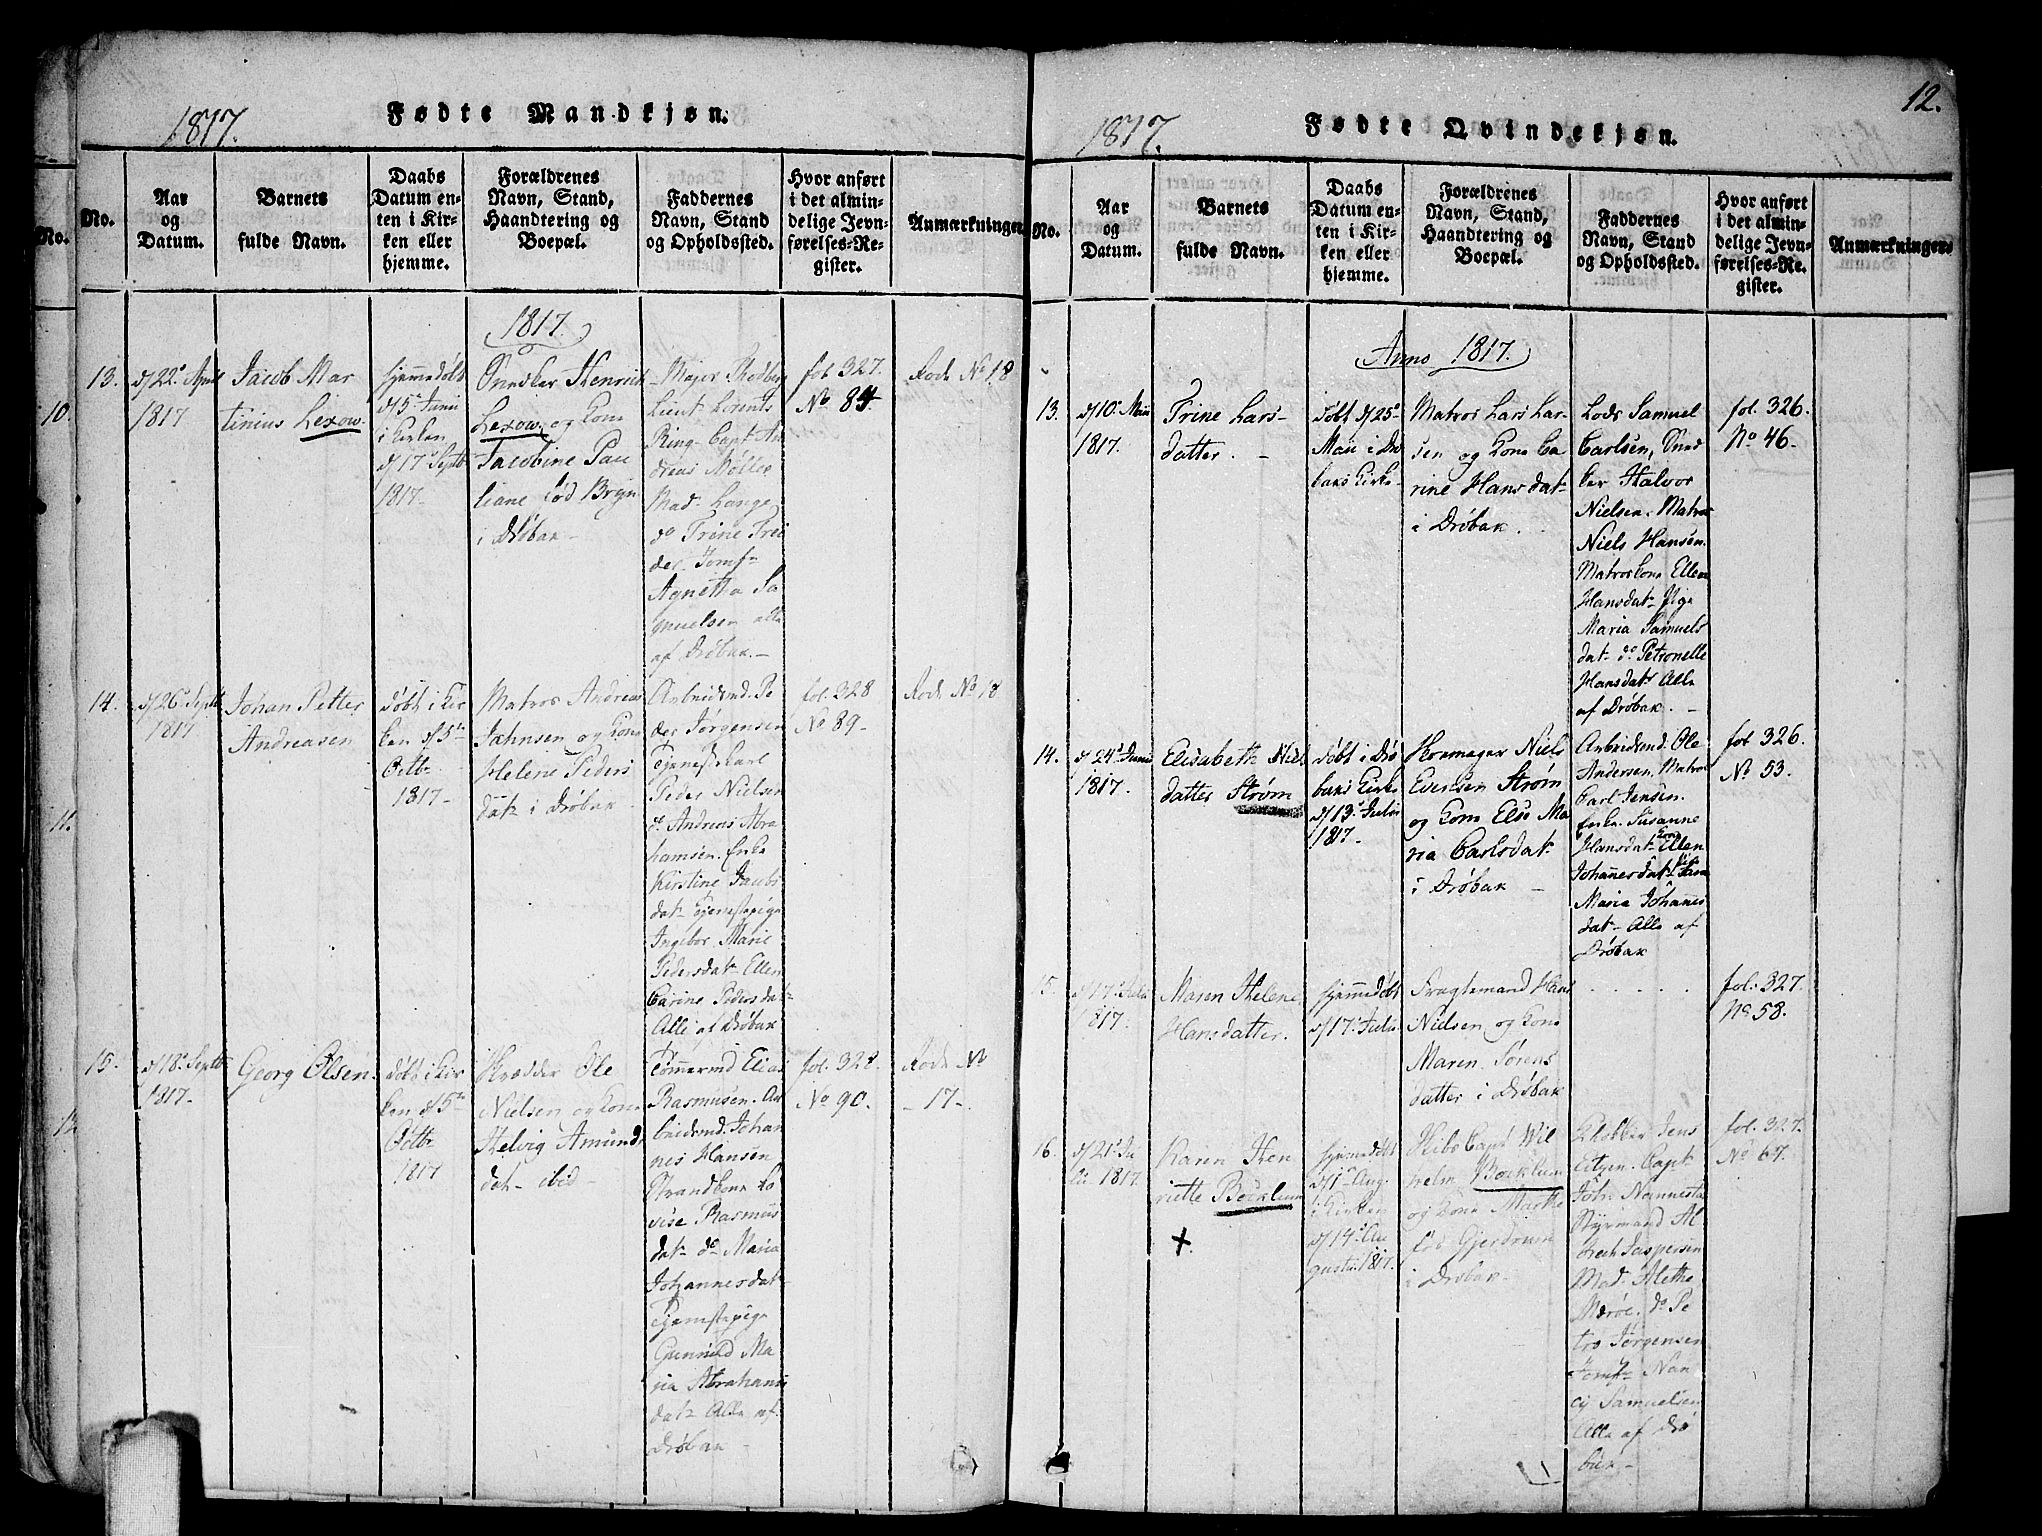 1817.
Fødte Mandkjøn.
No.
Aar
og
Datum.
Barnets
fulde Navn.
Daabs
Datum en-
ten i Kir-
ken eller
hjemme.
Forældrenes
Navn, Stand,
Haandtering og
Boepæl.
Faddernes
Navn, Stand
og Opholdssted.
Hvor anført
i det almin-
delige Jevn-
førelses-Re-
gister.
Anmærkninger
1817.
13.
d/22de April
1817
Jacob Mar
tinius Lexow.
hjemmedøbt
d/5te Junii
i Kirken
d/17de Septb
1817-
Snedker Henrich
Lexow og Kone
Jacobine Pau
liane fød Bryn
i Drøbak-
Major Rodberg
Lieut Lorents
Ring. Capt An
dreas Møller
Mad. Lange
do Trine Trei
der. Jomf.
Agnetta Sa
muelsen alle
af Drøbak.-
fol 327.
No 84.
Rode No 18
14.
d/26de Septb
1817
Johan Petter
Andreasen
døbt i Kir
ken d/5te
Octbr.
1817-
Matros Andreas
Jahnsen og Kone
Helene Peders
dat- i Drøbak-
Arbeidsmd. Pe
der Jørgensen
Tjenestkarl
Peder Nielsen
do Andreas Abra
hamsen. Enke
Kirstine Jacobs
dat- Tjenestepige
Ingebor. Marie
Pedersdat- Ellen
Carine Pedersdat-
Alle af Drøbak
fol. 328
No 89-
Rode No 18
15.
d/18de Septb
1817-
Georg Olsen.
døbt i Kir
ken d/5te
Octbr
1817
Skrædder Ole
Nielsen og Kone
Helvig Amunds
dat- ibid-
Tømmermd Elias
Rasmusen. Ar
beidsmd. Johan
nes Hansen
Strandkone Lo
vise Rasmus
dat- do Maria
Johannesdat-
Tjenestepige
Gunnild Ma
ria Abrahams
dat- Alle af
Drøbak-
fol. 328
No 90.
Rode No
- 17-.
10.
11.
12
12.
1817.
Fødte Qvindekjøn.
No.
Aar
og
Datum.
Barnets
fulde Navn.
Daabs
Datum en-
ten i Kir-
ken eller
hjemme.
Forældrenes
Navn, Stand,
Haandtering og
Boepæl.
Faddernes
Navn, Stand
og Opholdssted.
Hvor anført
i det almin-
delige Jevn-
førelses-Re-
gister.
Anmærkninger
Anno 1817.
13.
d/10de Maii
1817.
Trine Lars-
datter. -
døbt d/25de
Maii i Drø
baks Kirke-
Matros Lars Lar-
sen og Kone Ca
rine Hansdat-
i Drøbak.
Lods Samuel
Carlsen, Sned
ker Halvor
Nielsen. Matros
Niels Hansen.
Matroskone Ellen
Hansdat- Pige
Maria Samuels
dat- do Petronelle
Hansdat- Alle
af Drøbak. -
fol. 326.
No 46-
14.
d/24de Junii
1817.
Elisabeth Niels
datter Strøm
døbt i Drø
baks Kirke
d/13de Julii
1817-
Skoemager Niels
Evensen Strøm
og Kone Else Ma
ria Carlsdat-
i Drøbak -
Arbeidsmd. Ole
Andersen. Matros
Carl Jensen.
Enke. Susanne
Hansdat- Kone Ellen
Johannesdat-
Maria Johannes
dat- Alle af
Drøbak
fol 326.
No 53.
15.
d/17de Julii
1817.
Maren Helene
Hansdatter.
hjemmedøbt
d/17de Julii
Fragtemand Hans
Nielsen og Kone
Maren Sørens
datter i Drøbak
. . . . .
fol. 327.
No 58.
16.
d/21de Ju
lii 1817.
Karen Hen
riette Bocklum
+.
hjemmedøbt
d/1te Aug.
i Kirken
d/14de Au
gustii 1817.
Skibs Capt Wil
helm Bocklum
og Kone Marthe
fød Gjerdrum
i Drøbak.
Klokker Jens
Eitzen. Capt
Joh. Nannestad
Styrmand Al
brech Jaspersen
Mad. Alethe
Marøe. do Pe
tro Jørgensen
Jomf. Nan
cy Samuelsen
Alle af Drø
bak-
fol. 327.
No 67.